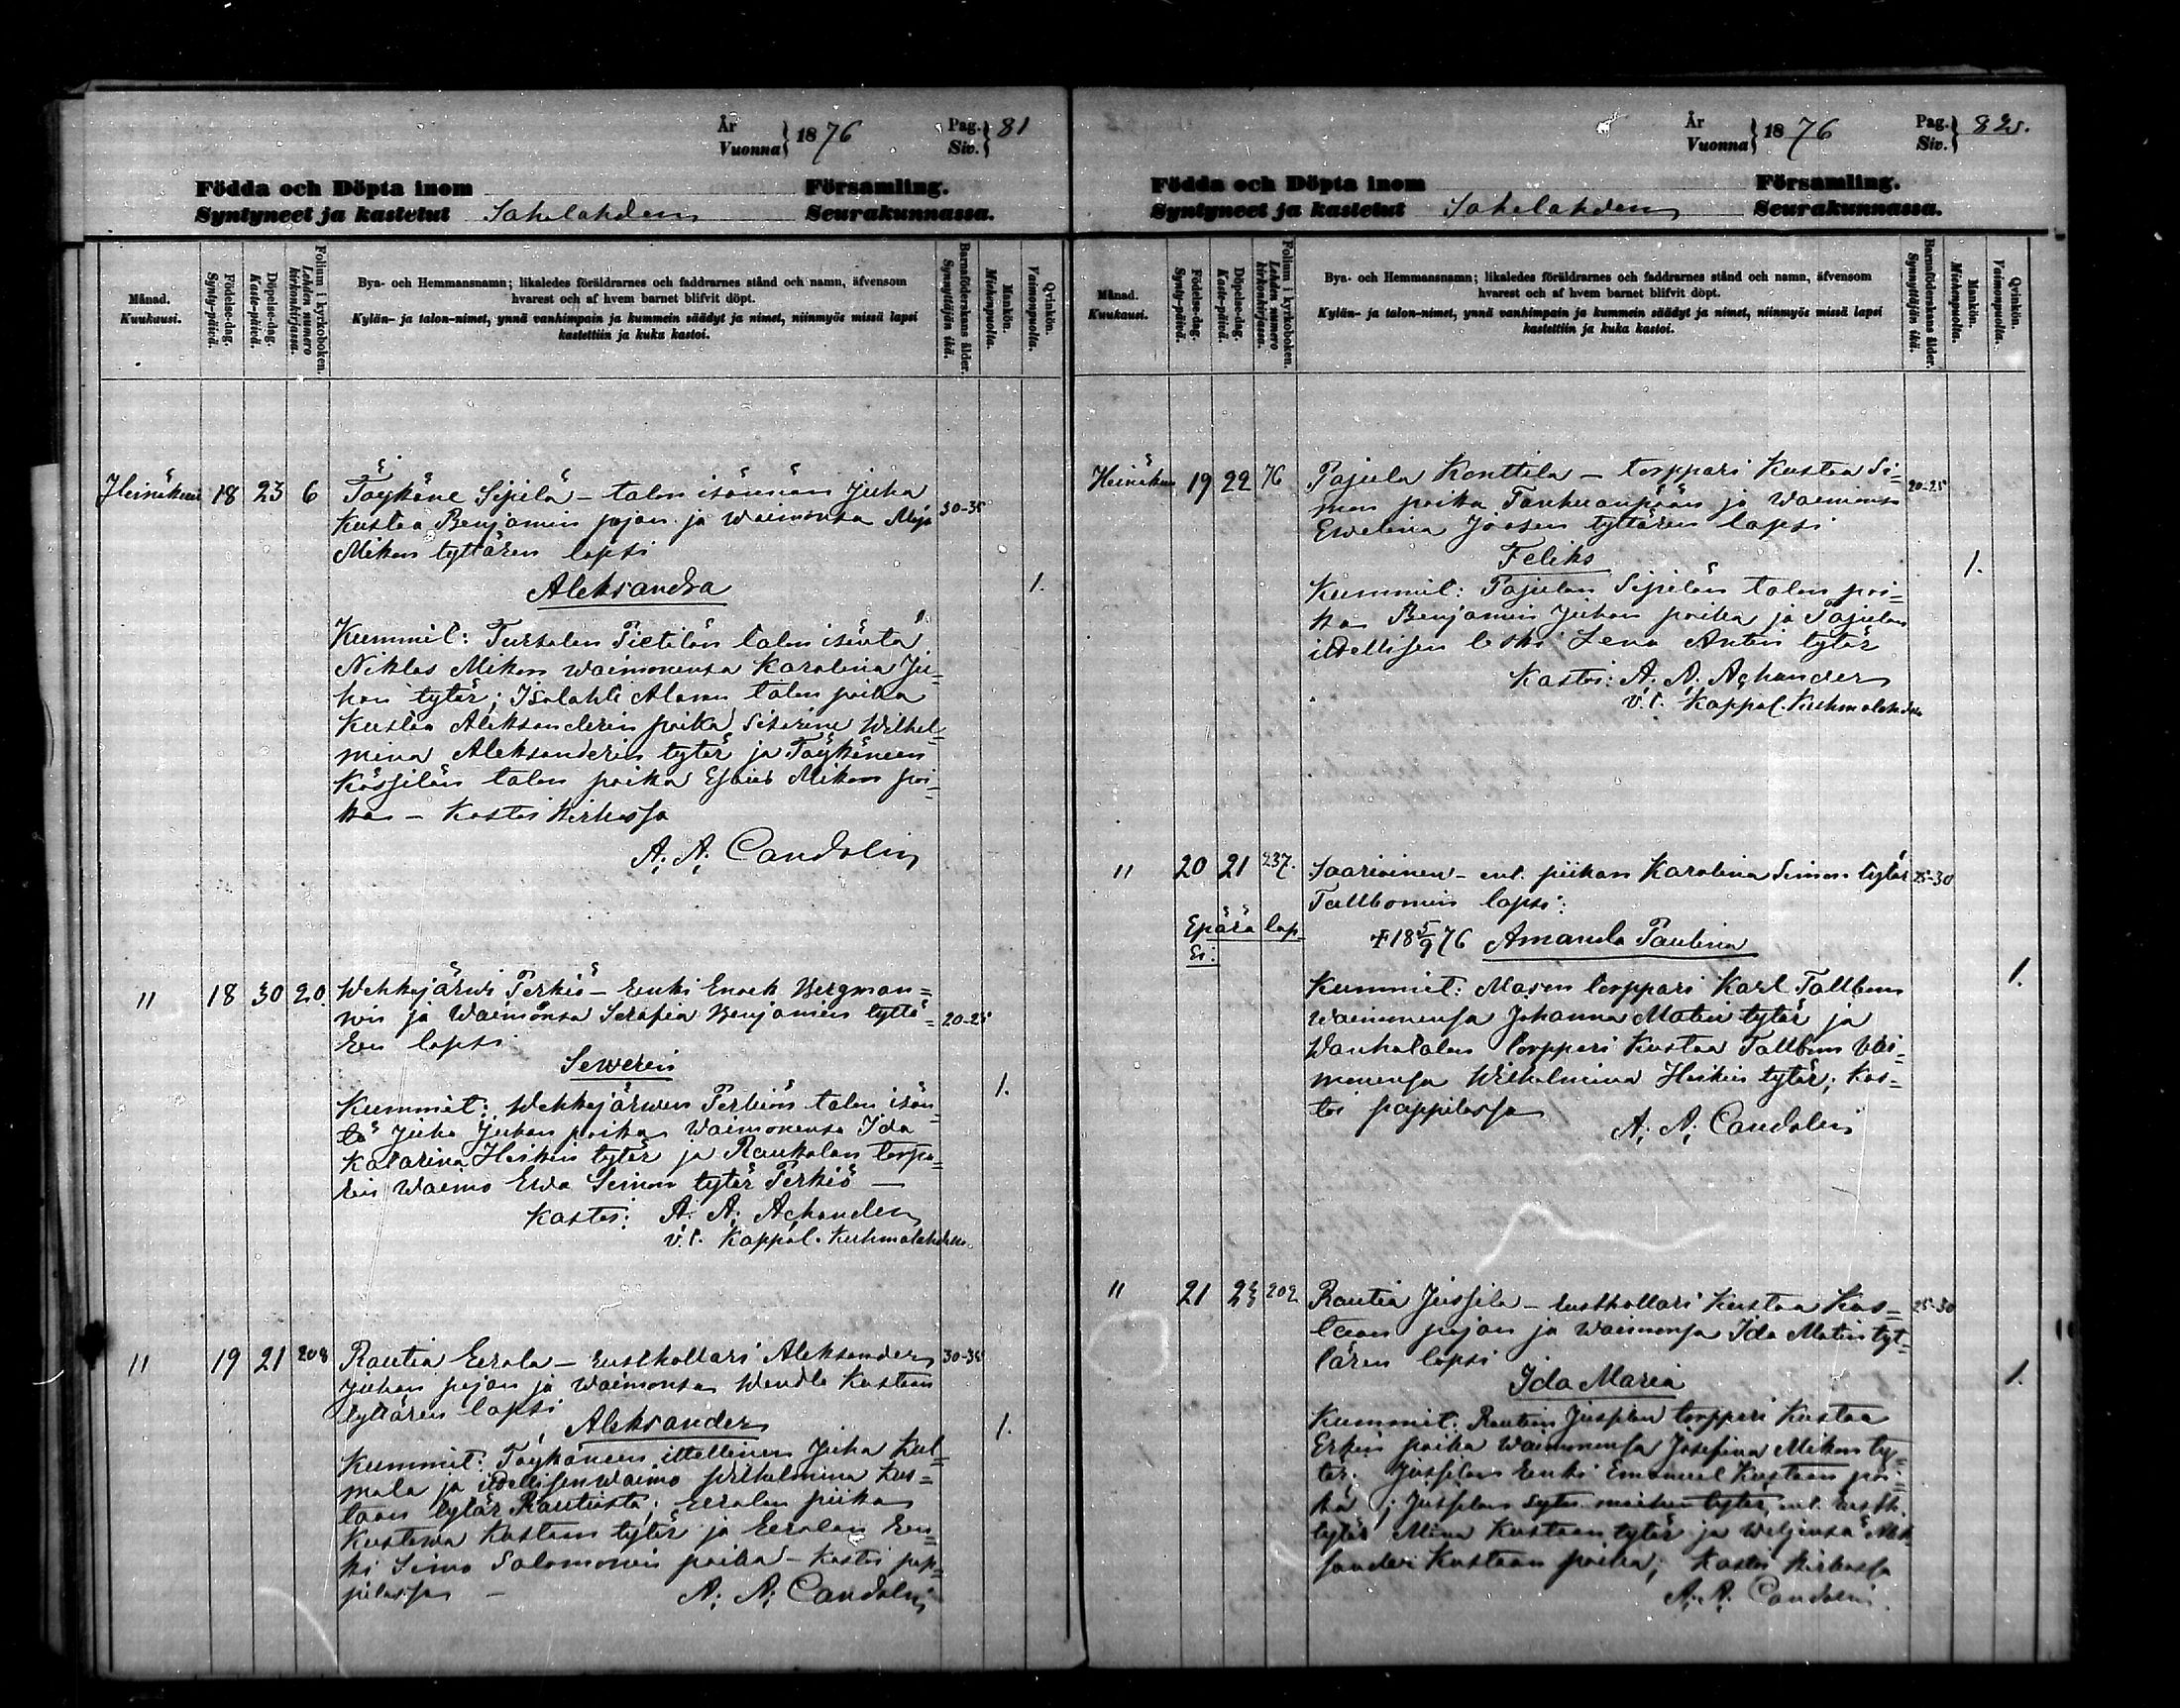 År
Vuonna } 1876
Pag.
Siv. } 81
Födda och Döpta inom Församling.
Syntyneet ja kastetut Sahalahden Seurakunnassa.
Månad.
Kuukausi.
Födelse-dag.
Synty-päivä.
Döpelse-dag.
Kaste-päivä.
Folium i kyrkoboken.
Lehden numero kirkonkirjassa.
Bya- och Hemmansnamn; likaledes föräldrarnes och faddrarnes stånd och namn, äfvensom
hvarest och af hvem barnet blifvit döpt.
Kylän- ja talon-nimet, ynnä vanhimpain ja kummein säädyt ja nimet, niinmyös missä lapsi
kastettiin ja kuka kastoi.
Barnaföderskans ålder.
Synnyttäjän ikä.
Mankön.
Miehenpuolia.
Qvinkön.
Vaimonpuolia.
Heinäkuu 18 23 6 Töykäne Sipilä - talon isännän Juha 30-35
Kustaa Benjamin pojan ja waimonsa Maja
Mikon tyttären lapsi
Aleksandra 1.
Kummit: Tursolan Pietilän talon isäntä
Niklas Mikon waimonensa Karolina Ju=
hon tytär; Isolahti Alasen talon poika
Kustaa Aleksanderin poika, Sisarine Wilhel=
mina Aleksanderin tytär ja Töykäneen
Kössilän talon poika Esaias Mikon poi=
ka - Kastoi Kirkossa
A. A. Candolin
" 18 30 20. Wehkajärwi Perkiö - Renki Enoch Bergman=
nin ja Waimonsa Serafia Benjamin tyttä= 20-25
ren lapsi
Sewerin 1.
Kummit: Wehkajärwen Perkiön talon isän=
tä Juha Juhan poika Waimonensa Ida
Katarina Heikin tytär ja Raukolan torpa=
rin Waimo Ewa Simon tytär Perkiö -
Kastoi: A. A. Achander
v.t. Kappal. Kuhmalahden
" 19 21 208 Rautia Eerola - Rusthollari Aleksander 30-35
Juhan pojan ja Waimonsa Wendla Kustaan
tyttären lapsi
Aleksander 1.
Kummit: Töykäneen itellinen Juha Kul=
mala ja itellisen waimo Wilhelmina Kus=
taan tytär Rautiasta; Eerolan piika
Kustawa Kustaan tytär ja Eerolan Ren=
ki Simo Salomonin poika - Kastoi pap=
pilassa - A. A. Candolin
År
Vuonna } 1876
Pag.
Siv. } 82.
Födda och Döpta inom Församling.
Syntyneet ja kastetut Sahalahden Seurakunnassa.
Månad.
Kuukausi.
Födelse-dag.
Synty-päivä.
Döpelse-dag.
Kaste-päivä.
Folium i kyrkoboken.
Lehden numero kirkonkirjassa.
Bya- och Hemmansnamn; likaledes föräldrarnes och faddrarnes stånd och namn, äfvensom
hvarest och af hvem barnet blifvit döpt.
Kylän- ja talon-nimet, ynnä vanhimpain ja kummein säädyt ja nimet, niinmyös missä lapsi
kastettiin ja kuka kastoi.
Barnaföderskans ålder.
Synnyttäjän ikä.
Mankön.
Miehenpuolia.
Qvinkön.
Vaimonpuolia.
Heinäkuu 19 22 76 Pajula Konttila - torppari Kustaa Si= 20-25
mon poika Tanhuanpään ja Waimonsa
Ewelina Joosen tyttären lapsi
Feliks 1.
Kummit: Pajulan Sipilän talon poi=
ka Benjamin Juhan poika ja Pajulan
itellisen leski Lena Antin tytär
Kastoi: A. A. Achander
v.t. Kappal. Kuhmalahden
" 20 21 237. Saarioinen - ent. piikan Karolina Simon tytär 25-30
Tallbomin lapsi:
Epärä lap=
si:
+ 18 5/9 76 Amanda Paulina
1.
Kummit: Moson torppari Karl Tallbom
waimonensa Johanna Matin tytär ja
Wanhatalon torppari Kustaa Tallbom Wai=
monensa Wilhelmina Heikin tytär; Kas=
toi pappilassa
A. A. Candolin
" 21 23 202 Rautia Jussila - Rusthollari Kustaa Kus= 25-30
taan pojan ja Waimonsa Ida Matin tyt=
tären lapsi
Ida Maria 1.
Kummit: Rautian Jussilan torppari Kustaa
Erkin poika Waimonensa Josefina Mikon ty=
tär; Jussilan Renki Emanuel Kustaan poi=
ka; Jussilan ent. Rusth.
tytär Mina Kustaan tytär ja Weljensä Alek=
sander Kustaan poika; Kastoi Kirkossa
A. A. Candolin